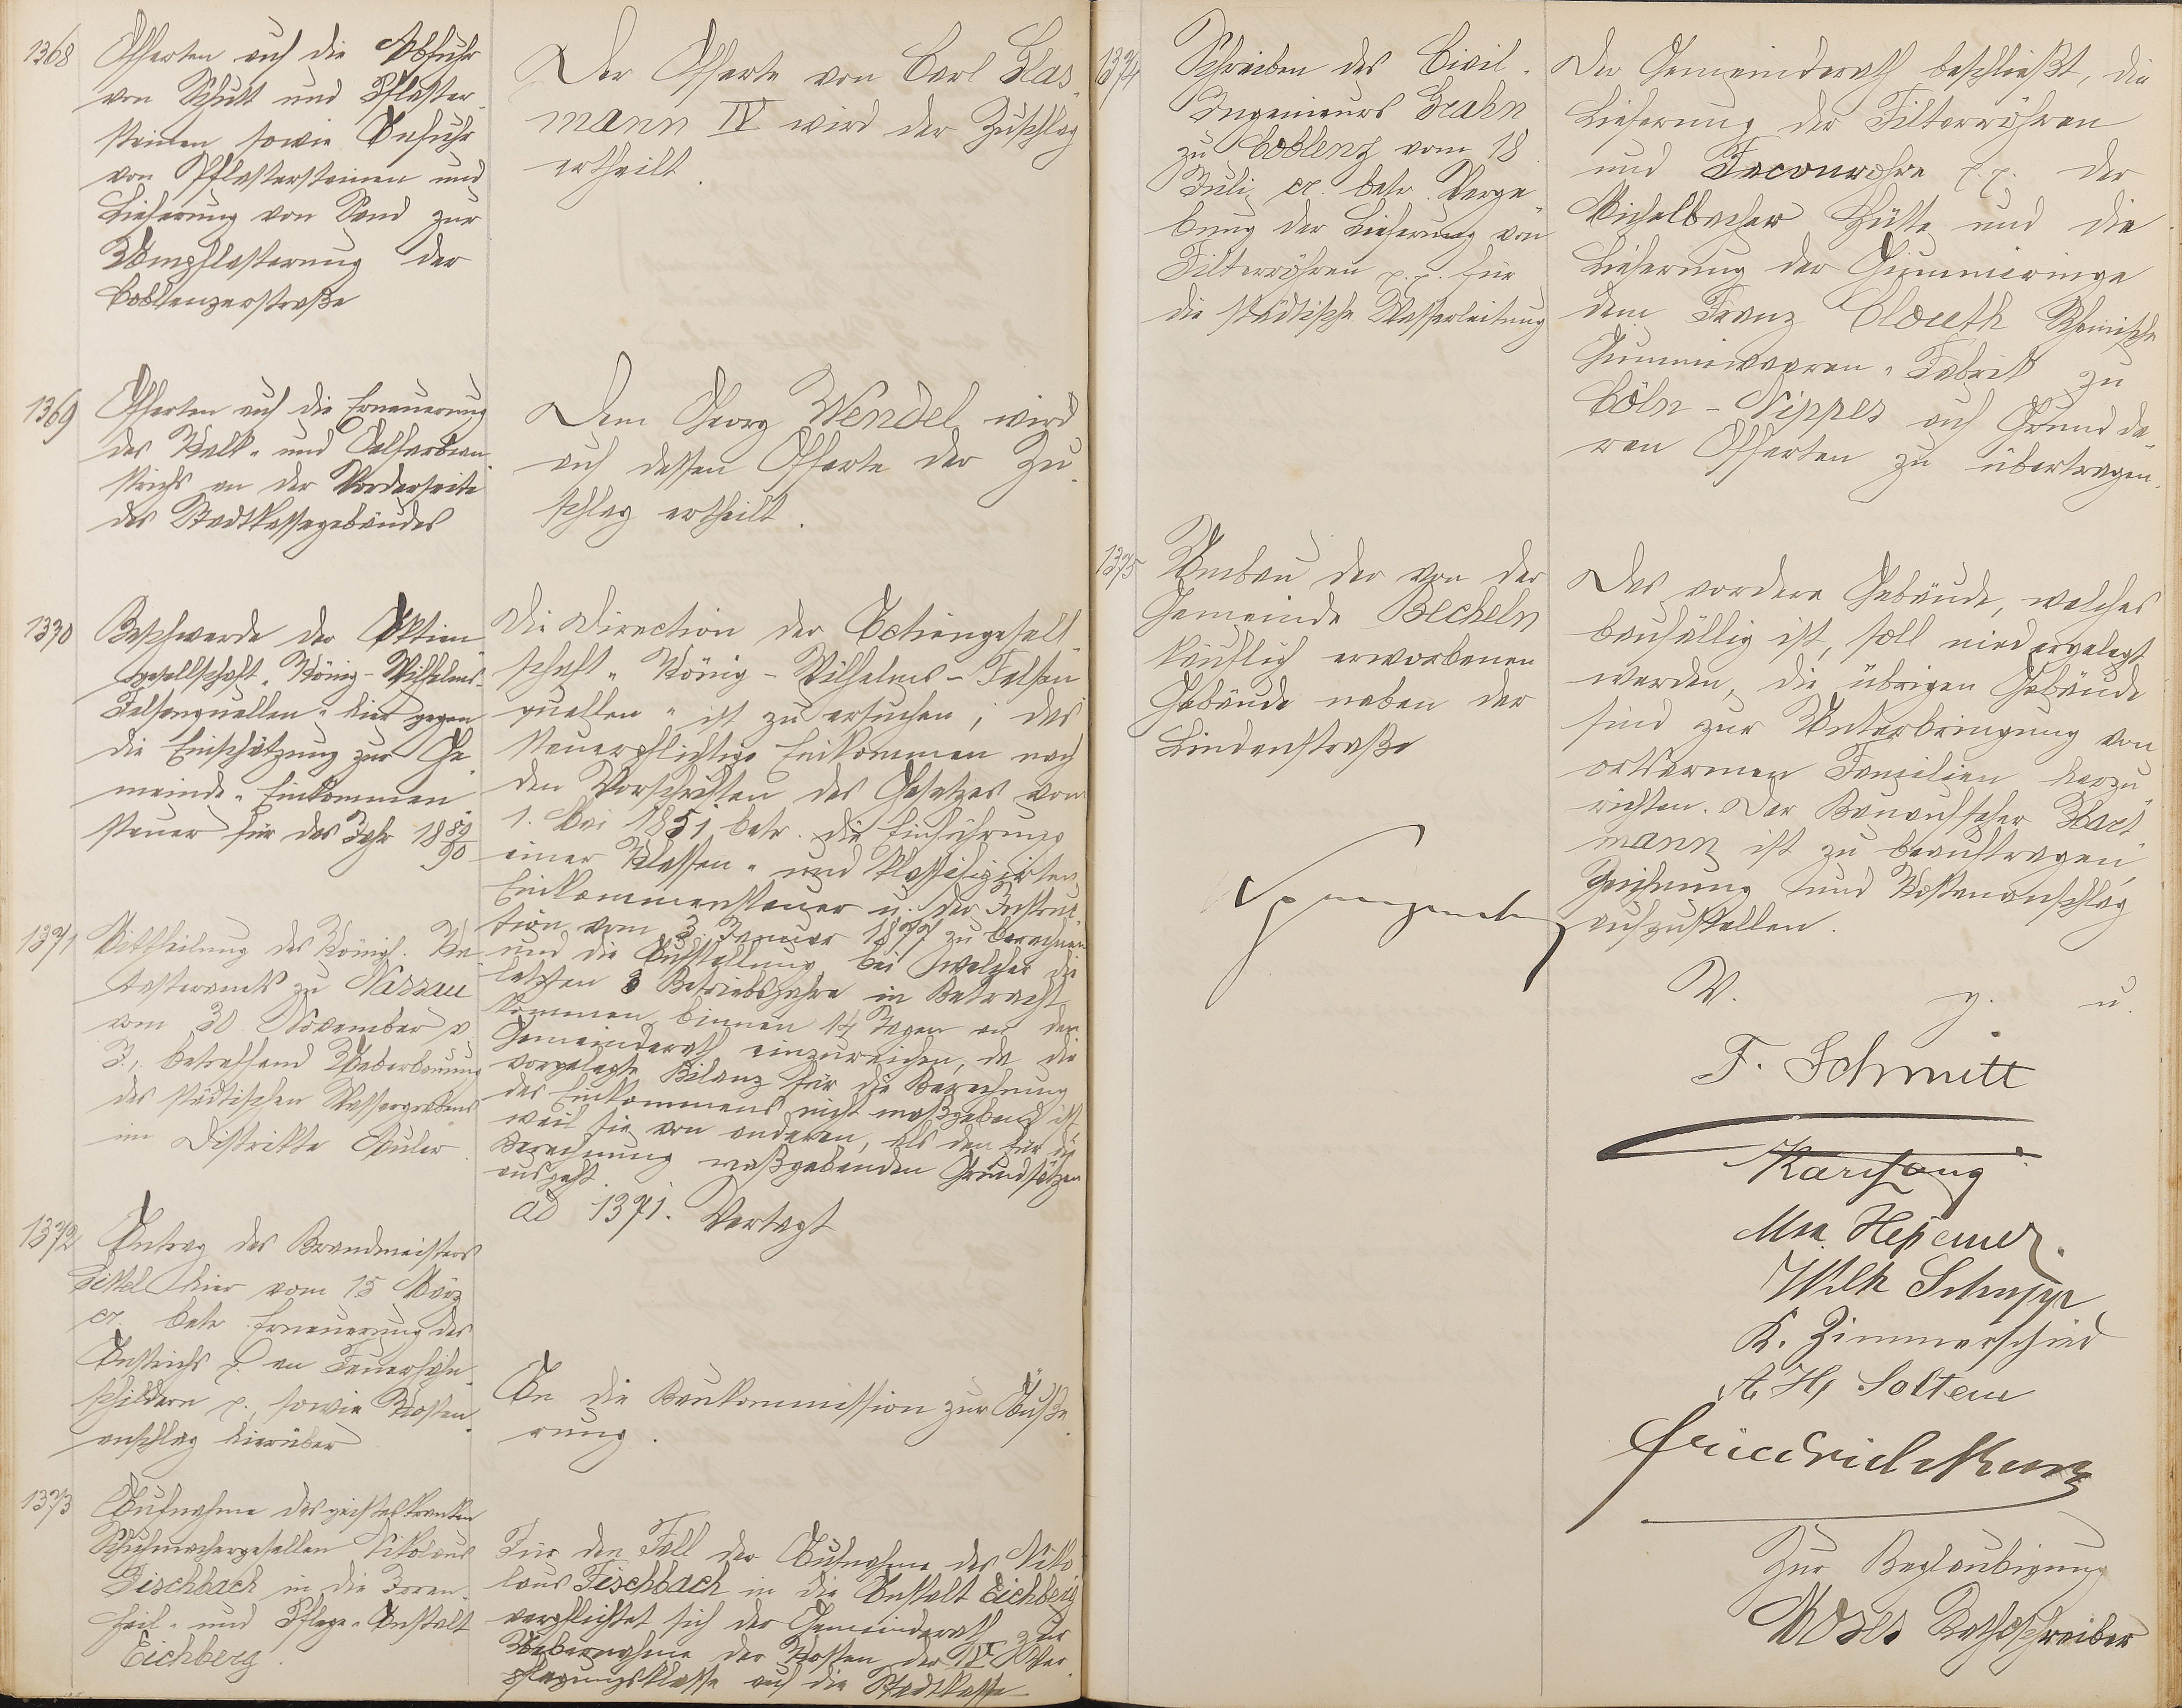 1368
Offerten auf die Abfuhr
von Schutt und Pflaster-
steinen sowie Anfuhr
von Pflastersteinen und
Lieferung von Sand zur
Umpflasterung der
Coblenzerstraße
Der Offerte von Carl Glas-
mann IV wird der Zuschlag
ertheilt.
1369
Offerten auf die Erneuerung
des Kalk- und Oelfarban-
strichs an der Vorderseite
des Stadtkassegebäudes
Dem Georg Wendel wird
auf dessen Offerte der Zu-
schlag ertheilt.
1370
Beschwerde der Aktien-
gesellschaft "König-Wilhelms-
Felsenquellen" hier gegen
die Einschätzung zur Ge-
meinde-Einkommen-
steuer für das Jahr 1889/90
Die Direction der Actiengesell-
schaft "König-Wilhelms-Felsen-
quellen" ist zu ersuchen, das
steuerpflichtige Einkommen nach
den Vorschriften des Gesetzes vom
1. Mai 1851 betr. die Einführung
einer Klassen- und klassifizirten
Einkommensteuer u. der Instruc-
tion vom 3. Januar 1877 zu berechnen
und die Aufstellung bei welcher die
letzten 3 Betriebsjahre in Betracht
kommen binnen 14 Tagen an den
Gemeinderath einzureichen, da die
vorgelegte Bilanz für die Berechnung
des Einkommens nicht maßgebend ist
weil sie von anderen, als den für die
Berechnung maßgebenden Grundsätzen
ausgeht.
1371
Mittheilung des Königl. Ka-
tasteramts zu Nassau
vom 30 November v.
J., betreffend Ueberbauung
des städtischen Wassergrabens
im Distrikte
ad 1371. Vertagt
1372
Antrag des Brandmeisters
hier vom 15 März
cr. betr. Erneuerung des
Anstrichs p. an Feuerhahn-
schildern p. sowie Kosten-
anschlag hierüber
An die Baukommission zur Äuße-
rung.
1373
Aufnahme des geisteskranken
Schuhmachergesellen Nikolaus
Fischbach in die Irren-
heil- und Pflege-Anstalt
Eichberg.
Für den Fall der Aufnahme des Niko-
laus Fischbach in die Anstalt Eichberg
verpflichtet sich der Gemeinderath zur
Uebernahme der Kosten der IV Ver-
pflegungsklasse auf die Stadtkasse
1374
Schreiben des Civil-
Ingenieurs Grahn
zu Coblenz vom 18
Juli cr. betr. Verge-
bung der Lieferung von
Filterröhren p.p. für
die städtische Wasserleitung
Der Gemeinderath beschließt, die
Lieferung der Filterröhren
und Faconrohre p.p. der
Michelbacher Hütte und die
Lieferung der Gummiringe
dem Franz Clouth Rheinische
Gummiwaaren-Fabrik zu
Cöln-Nippes auf Grund de-
ren Offerten zu übertragen.
1375
Umbau der von der
Gemeinde Becheln
käuflich erworbenen
Gebäude neben der
Lindenstraße
Das vordere Gebäude, welches
baufällig ist, soll niedergelegt
werden, die übrigen Gebäude
sind zur Unterbringung von
ortsarmen Familien herzu-
richten. Der Bauaufseher Hart-
mann ist zu beauftragen,
Zeichnung und Kostenanschlag
aufzustellen.
V. g. u.
F. Schmitt
Wilh Schupp
K. Zimmerschied
Zur Beglaubigung
Moses Rathsschreiber